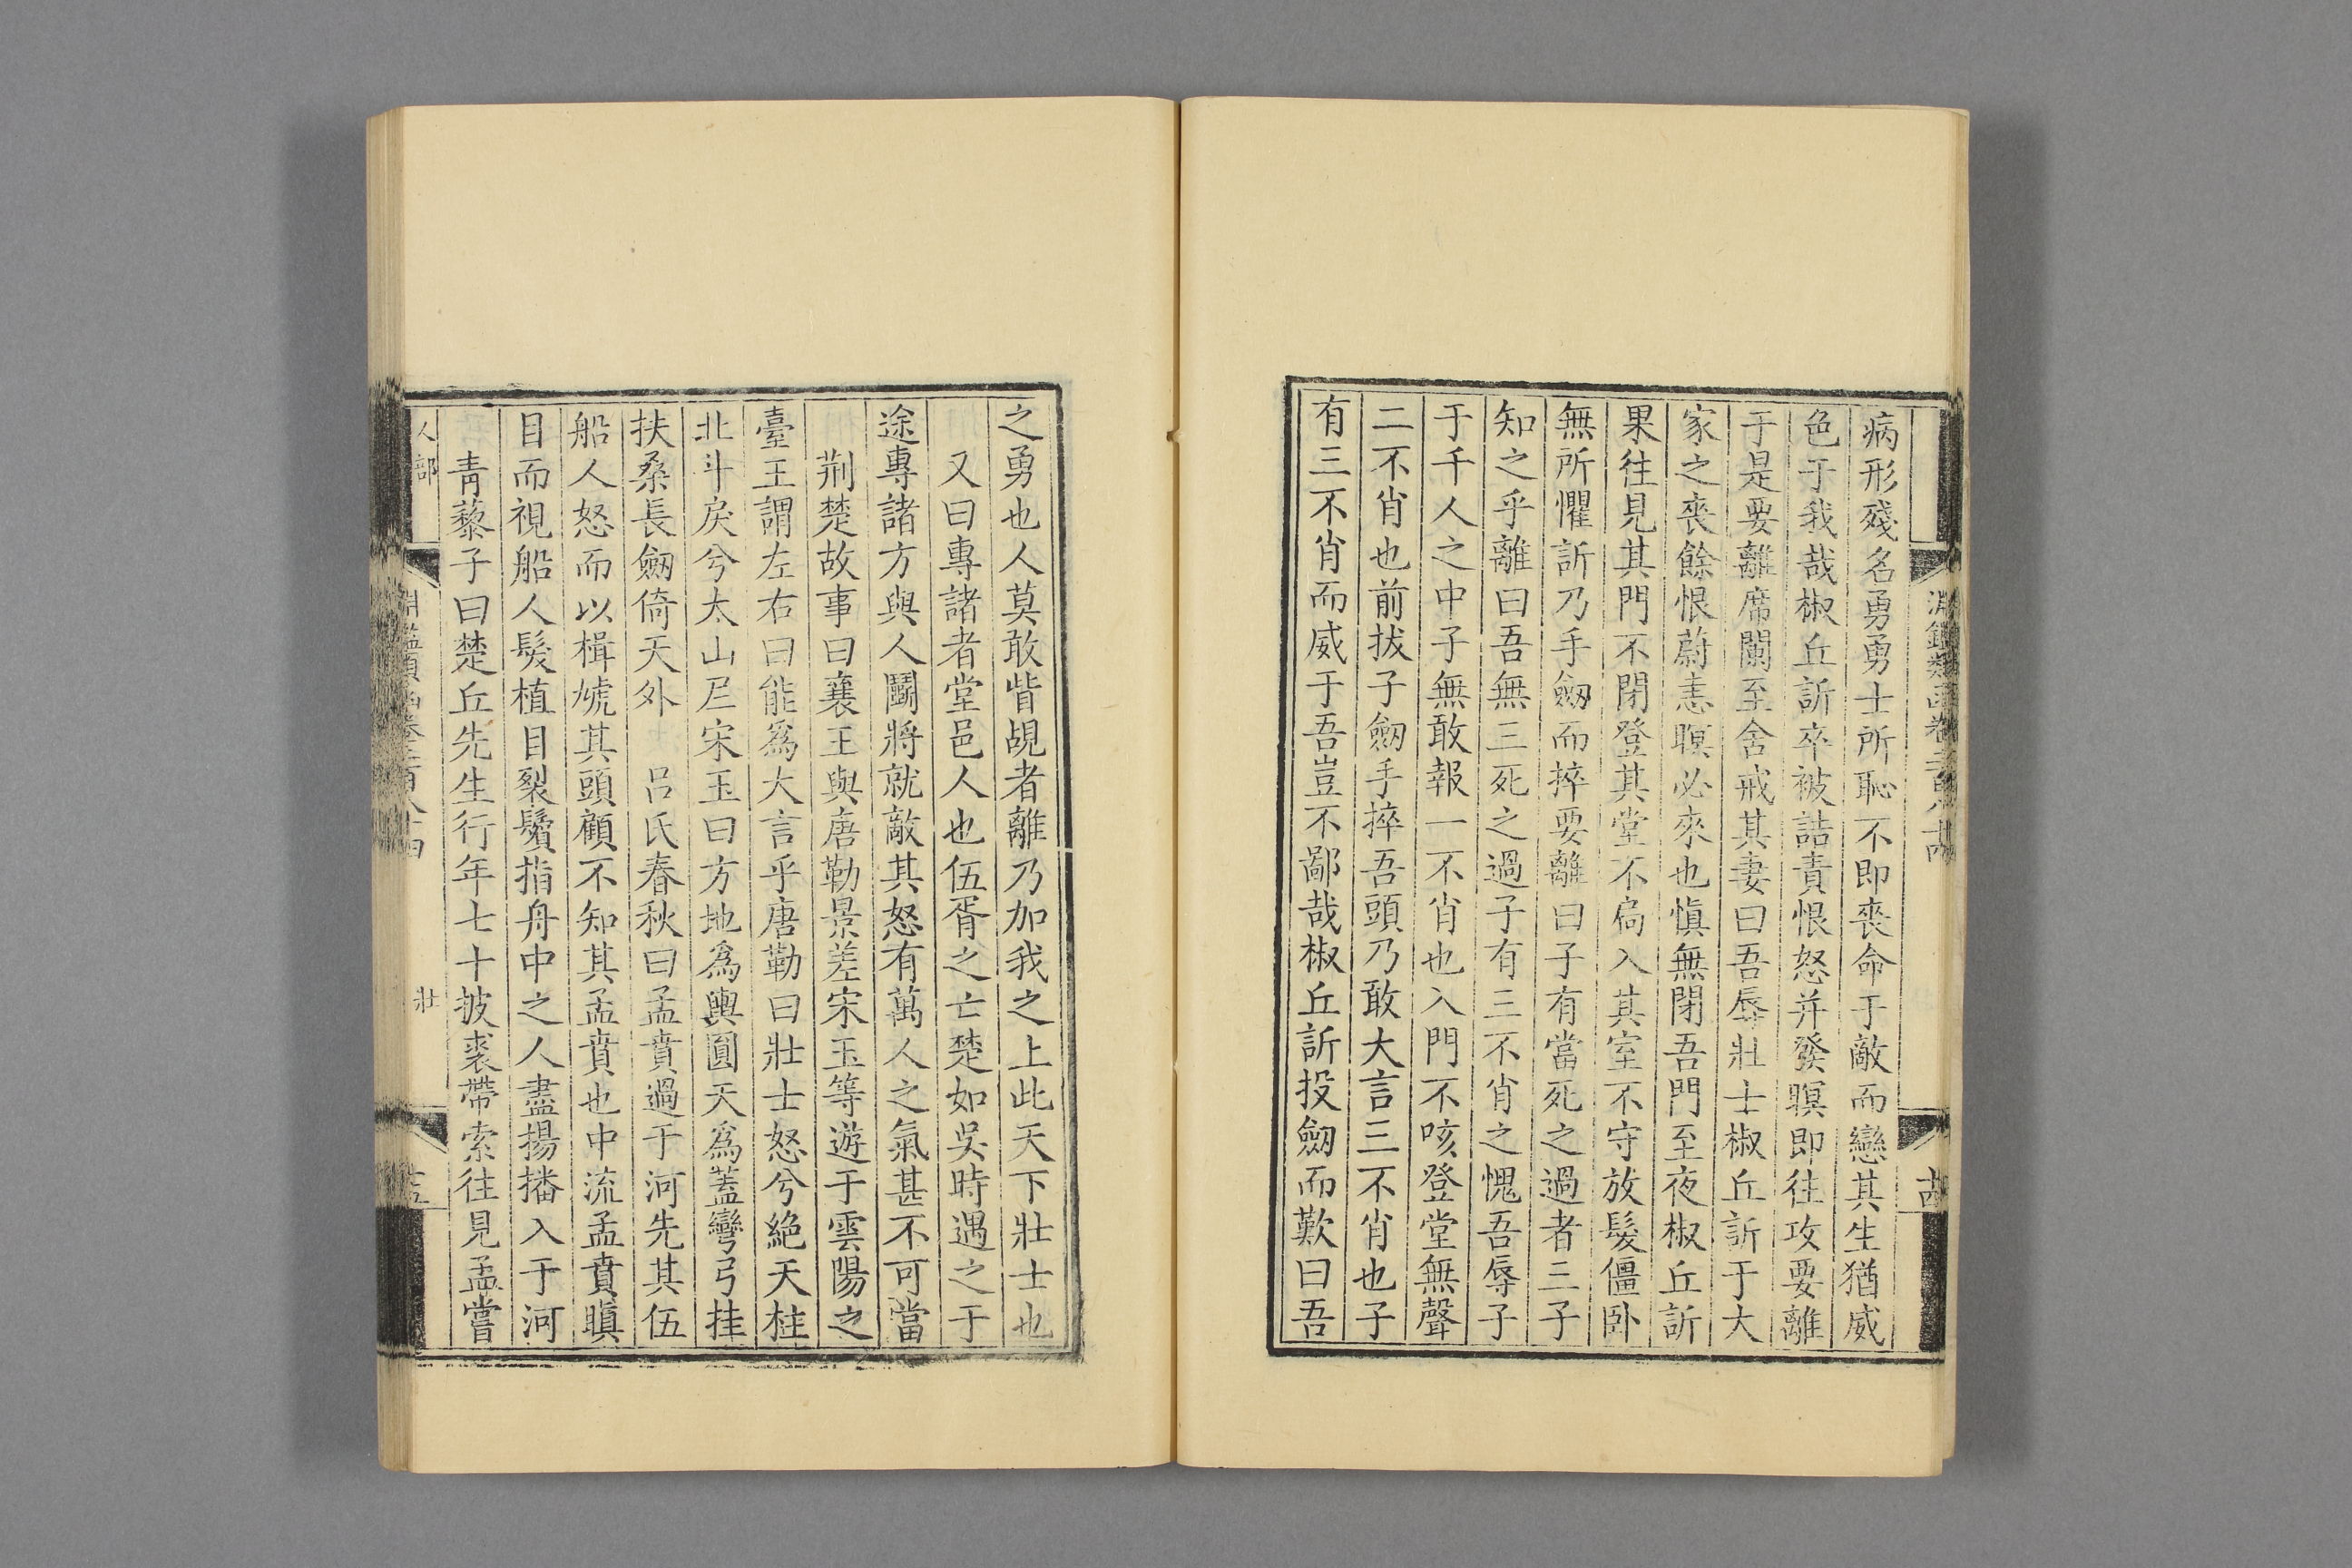 病形殘名勇勇士所恥不即喪命于敵而戀其生猶威
色于我哉椒丘訢卒被詰責恨怒并發暝即往攻要離
于是要離席闌至舍戒其妻曰吾辱壯士椒丘訢于大
家之喪餘恨蔚恚暝必來也慎無閉吾門至夜椒丘訢
果往見其門不閉登其堂不扃入其室不守放髮僵卧
無所懼訢乃手劒而捽要離曰子有當死之過者三子
知之乎離曰吾無三死之過子有三不肖之愧吾辱子
于千人之中子無敢報一不肖也入門不咳登堂無聲
二不肖也前拔子劒手捽吾頭乃敢大言三不肖也子
有三不肖而威于吾豈不鄙哉椒丘訢投劒而歎曰吾
之勇也人莫敢眥覘者離乃加我之上此天下壯士也
又曰專諸者堂邑人也伍胥之亡楚如吳時遇之于
途專諸方與人鬬將就敵其怒有萬人之氣甚不可當
荆楚故事曰襄王與唐勒景差宋玉等遊于雲陽之
臺王謂左右曰能爲大言乎唐勒曰壯士怒兮絶天柱
北斗戾兮太山𡰥宋玉曰方地爲輿圓天爲蓋彎弓挂
扶桑長劒倚天外 呂氏春秋曰孟賁過于河先其伍
船人怒而以楫虓其頭顧不知其孟賁也中流孟賁瞋
目而視船人髮植目裂鬢指舟中之人盡揚播入于河
青藜子曰楚丘先生行年七十披裘帶索往見孟嘗
人部
壯